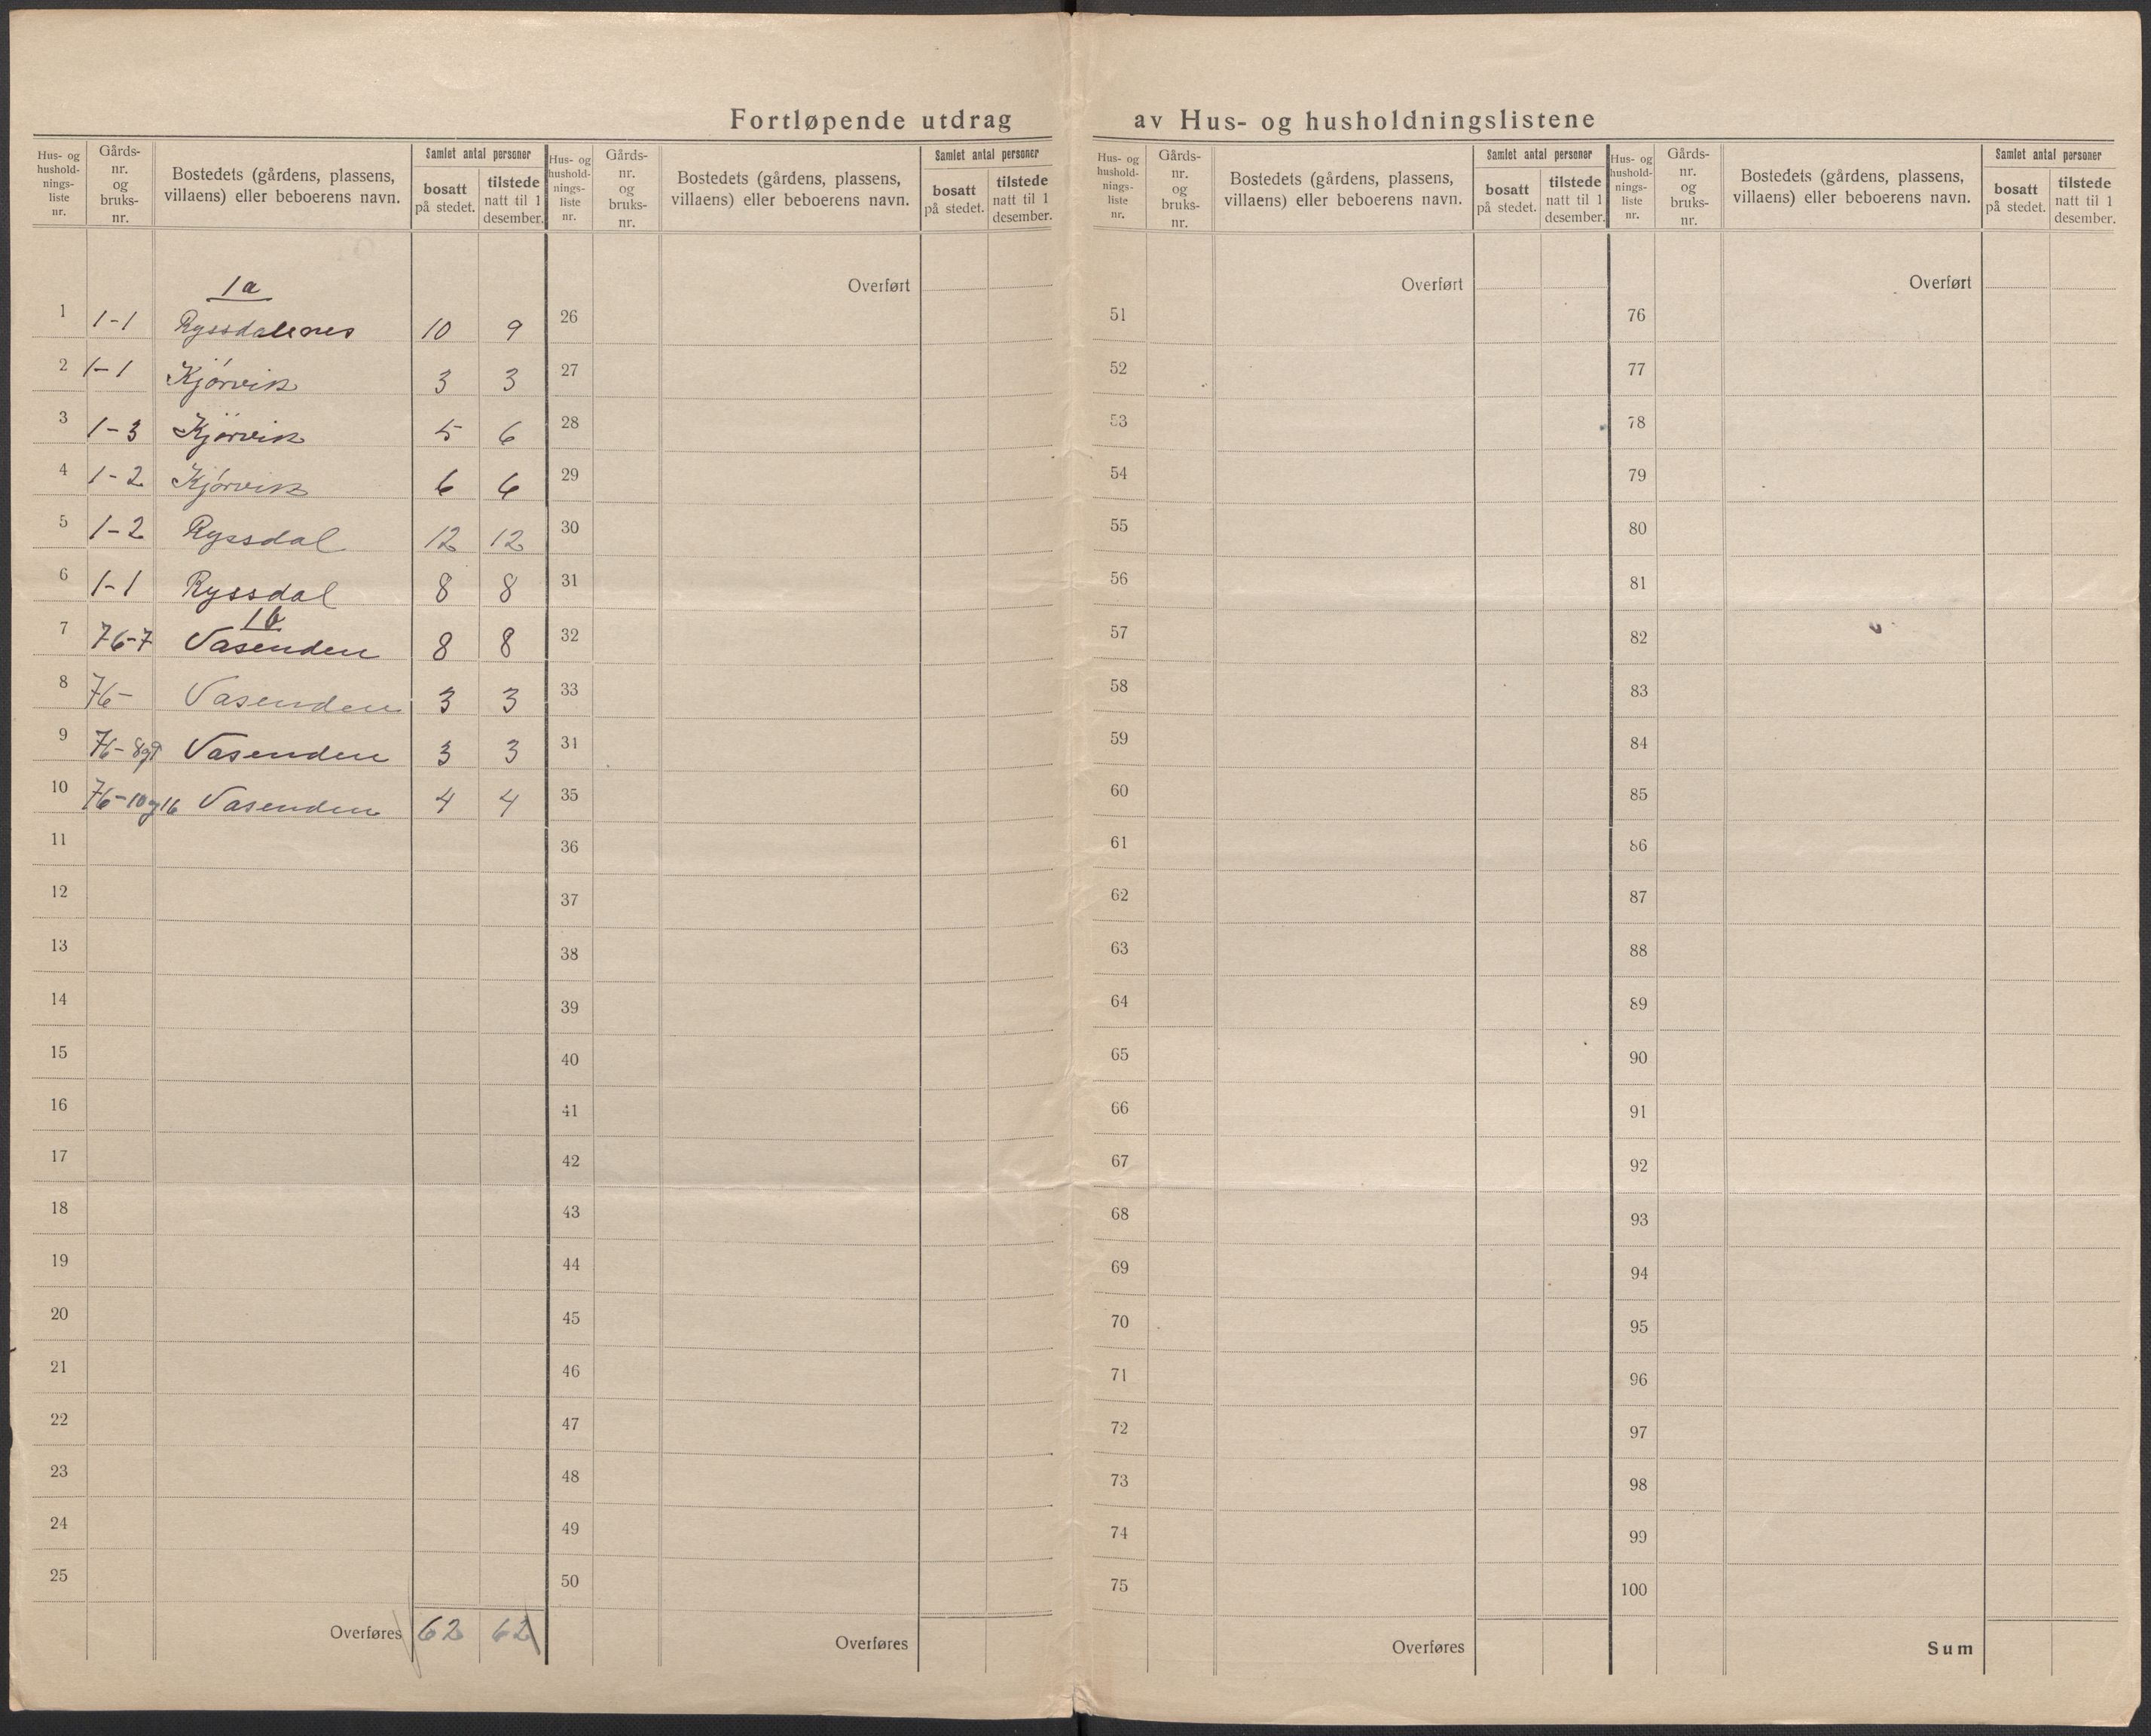 Fortløpende utdrag av Hus- og husholdningslistene
Hus- og husholdnings-liste nr. Gårds-nr. og bruks-nr. Bostedets (gårdens, plassens, villaens) eller beboerens navn. Samlet antal personer bosatt på stedet. tilstede natt til 1 desember.
1a
1 1-1 Ryssdalenes 10 9
2 1-1 Kjørvik 3 3
3 1-3 Kjørvik 5 6
4 1-2 Kjørvik 6 6
5 1-2 Ryssdal 12 12
6 1-1 Ryssdal 8 8
1b
7 76-7 Vasenden 8 8
8 76- Vasenden 3 3
9 76-8og9 Vasenden 3 3
10 76-10og16 Vasenden 4 4
11
12
13
14
15
16
17
18
19
20
21
22
23
24
25
Overføres 62 62
Hus- og husholdnings-liste nr. Gårds-nr. og bruks-nr. Bostedets (gårdens, plassens, villaens) eller beboerens navn. Samlet antal personer bosatt på stedet. tilstede natt til 1 desember.
Overført
26
27
28
29
30
31
32
33
31
35
36
37
38
39
40
41
42
43
44
45
46
47
48
49
50
Overføres
Hus- og hushold-nings-liste nr. Gårds-nr. og bruks-nr. Bostedets (gårdens, plassens, villaens) eller beboerens navn. Samlet antal personer bosatt på stedet. tilstede natt til 1 desember.
Overført
51
52
53
54
55
56
57
58
59
60
61
62
63
64
65
66
67
68
69
70
71
72
73
74
75
Overføres
Hus- og hushold-nings-liste nr. Gårds-nr. og bruks-nr. Bostedets (gårdens, plassens, villaens) eller beboerens navn. Samlet antal personer bosatt på stedet. tilstede natt til 1 desember.
Overført
76
77
78
79
80
81
82
83
84
85
86
87
88
89
90
91
92
93
94
95
96
97
98
99
100
Sum